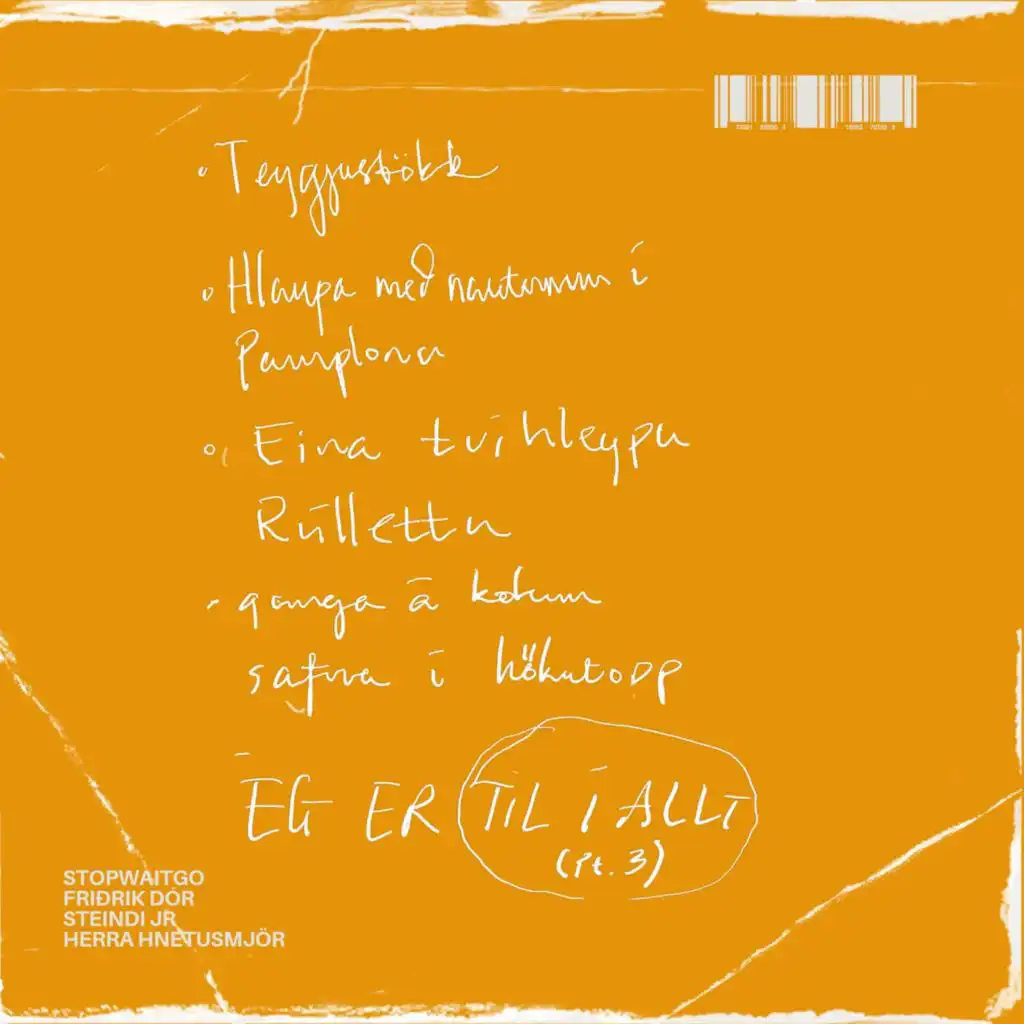 • Teygjustökk
• Hlaupa með nautunum í
Pamplona
• Eina tvíhleypu
Rúllettu
- ganga á kolum
safna í hökutopp
ÉG ER TIL Í ALLT
(Pt. 3)
STOPWAITGO
FRIÐRIK DÓR
STEINDI JR
HERRA HNETUSMJÖR